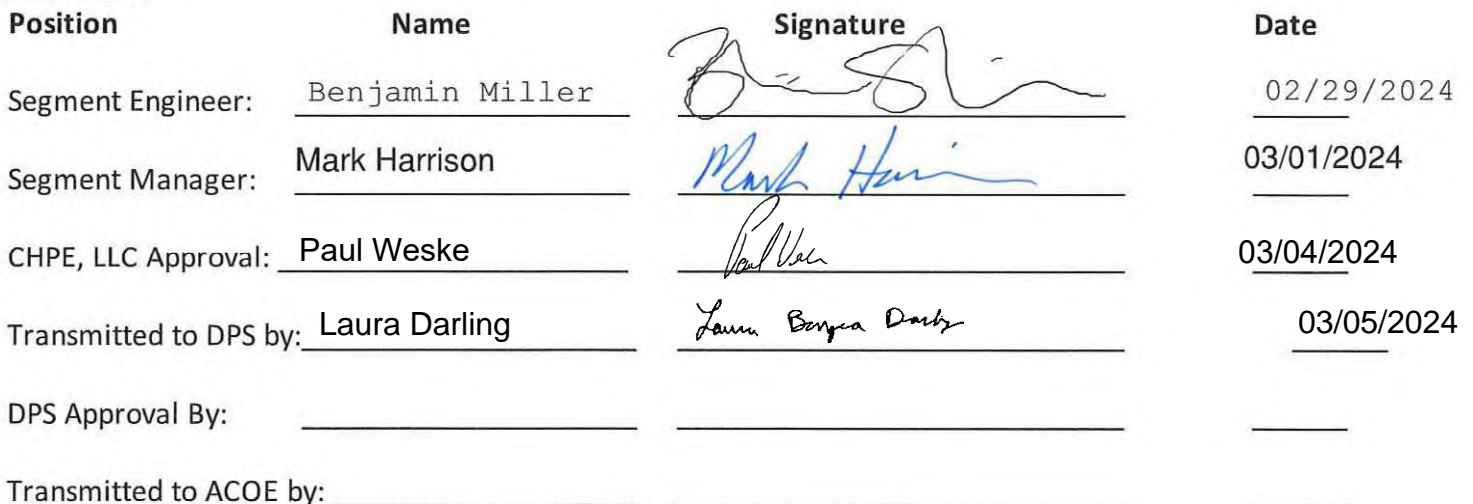 Position Name Signature Date
Segment Engineer: Benjamin Miller 02/29/2024
Segment Manager: Mark Harrison Mark Harrison 03/01/2024
CHPE, LLC Approval: Paul Weske Paul 03/04/2024
Transmitted to DPS by: Laura Darling Laura 03/05/2024
DPS Approval By:
Transmitted to ACOE by: